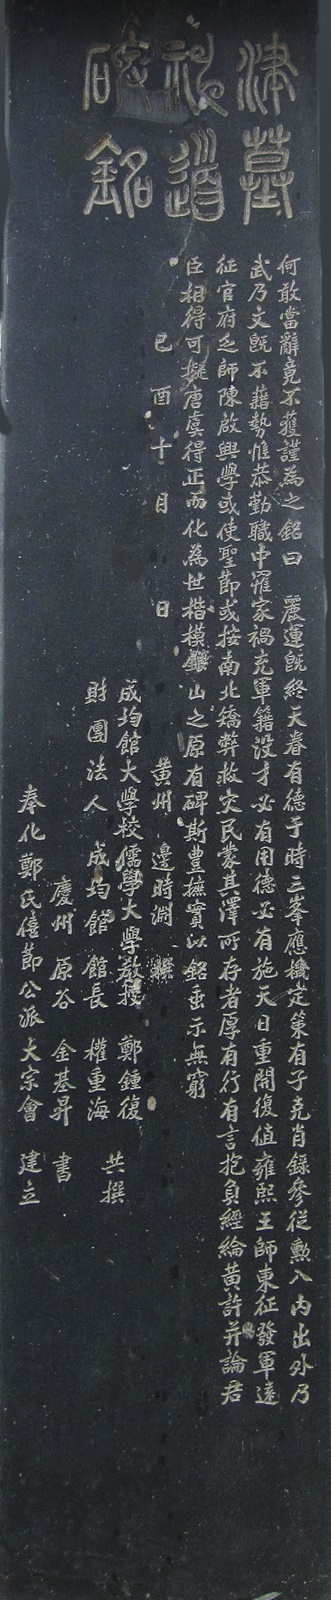 津墓
神道
碑銘
何敢當辭竟不獲謹為之銘曰 麗運旣終天眷有德于時三峯應機定策有子克肖錄參從勳入內出外乃
武乃文旣不藉勢惟恭勤職中罹家禍充軍籍沒才必有用德必有施天日重開復値雍熙王師東征發軍遠
征官府之師陳啟興學或使聖節或按南北矯弊救灾民蒙其澤所存者厚有行有言抱負經綸黃許并論君
臣相得可擬唐虞得正而化為世楷模 山之原有碑斯豊撫實以銘垂示無窮
己酉十月 日
黃州 邊時淵 撰
成均館大學校儒學大學敎授 鄭鍾復
財團法人 成均館 館長 權重海 共撰
慶州 原谷 金基昇 書
奉化鄭氏僖節公派大宗會 建立